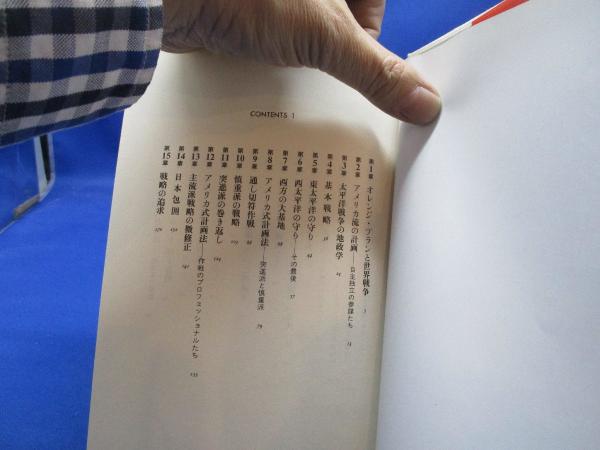 CONTENTS 1
第1章 オレンジ・プランと世界戦争 3
第2章 アメリカ流の計画——自主独立の参謀たち 12
第3章 太平洋戦争の地政学 25
第4章 基本戦略 38
第5章 東太平洋の守り 44
第6章 西太平洋の守り——その最後 57
第7章 西方の大基地 68
第8章 アメリカ式計画法——突進派と慎重派 79
第9章 通し切符作戦 88
第10章 慎重派の戦略
第11章 突進派の巻き返し
第12章 アメリカ式計画法——作戦のプロフェッショナルたち 133
第13章 主流派戦略の微修正
第14章 日本包囲
第15章 戦略の追求